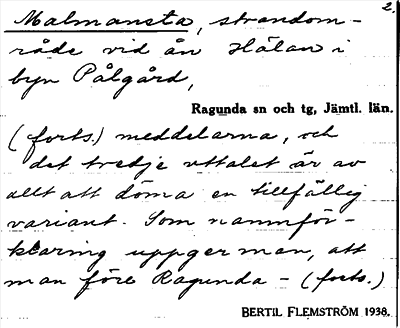 2.
Malmansta, strandom-
råde vid ån Hälan i
byn Pålgård,
Ragunda sn och tg, Jämtl. län.
(forts.) meddelarna, och
det tredje uttalet är av
allt att döma en tillfällig
variant. Som namnför-
klaring uppger man, att
man före Ragunda - (forts.)
BERTIL FLEMSTRÖM 1938.